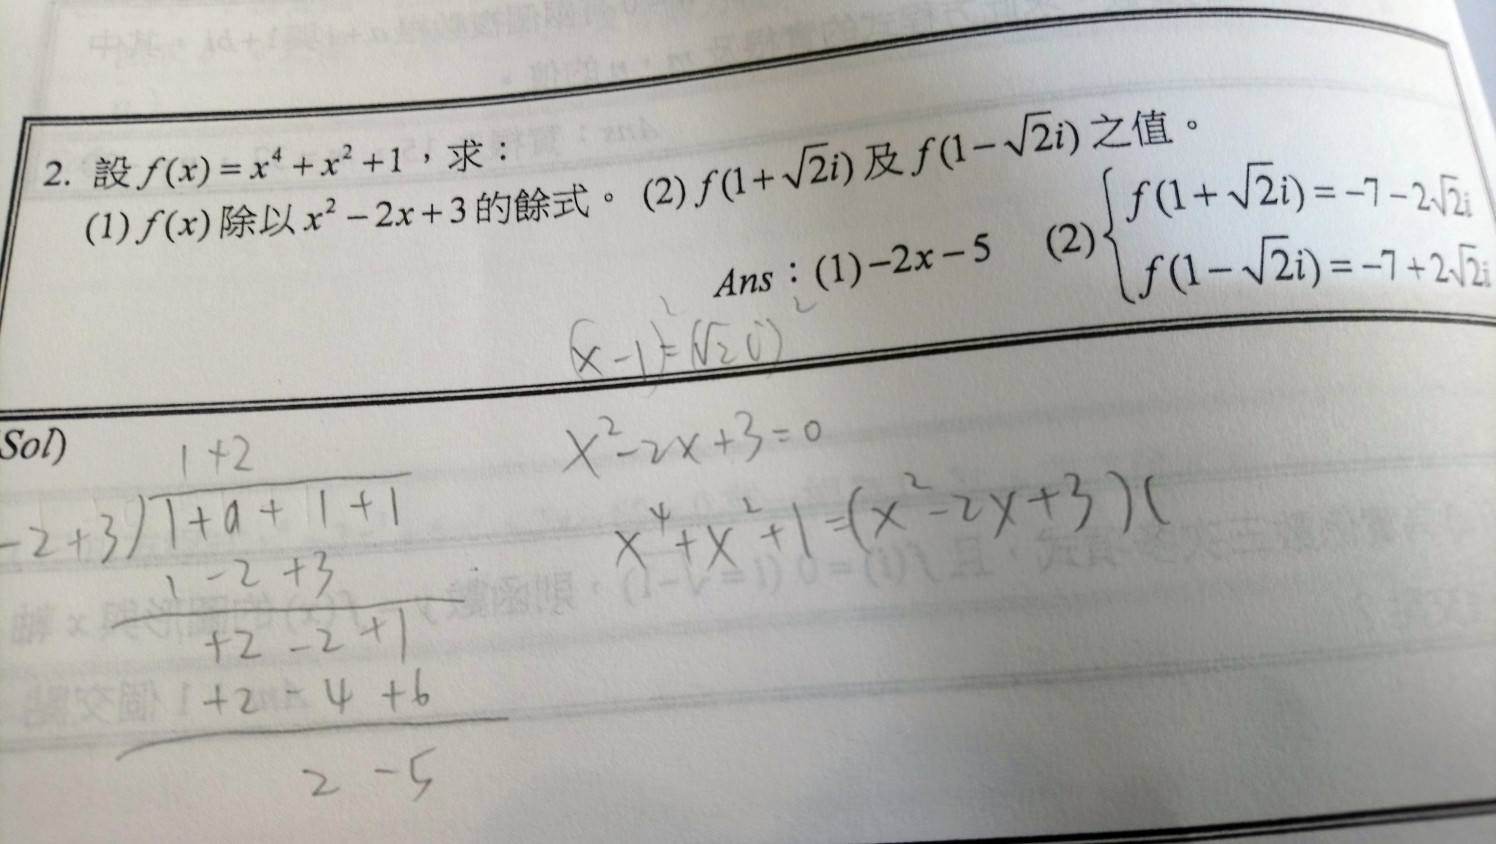 2. 設 f(x) = x⁴ + x² + 1，求：
(1) f(x) 除以 x² − 2x + 3 的餘式。 (2) f(1 + √2i) 及 f(1 − √2i) 之值。
Ans：(1) −2x − 5 (2) { f(1 + √2i) = −7 − 2√2i
f(1 − √2i) = −7 + 2√2i
(x − 1)² = (√2 i)²
Sol)
x² − 2x + 3 = 0
x⁴ + x² + 1 = (x² − 2x + 3) (
1 + 2
−2 + 3 ) 1 + 0 + 1 + 1
1 − 2 + 3
+2 − 2 + 1
+2 − 4 + 6
2 − 5